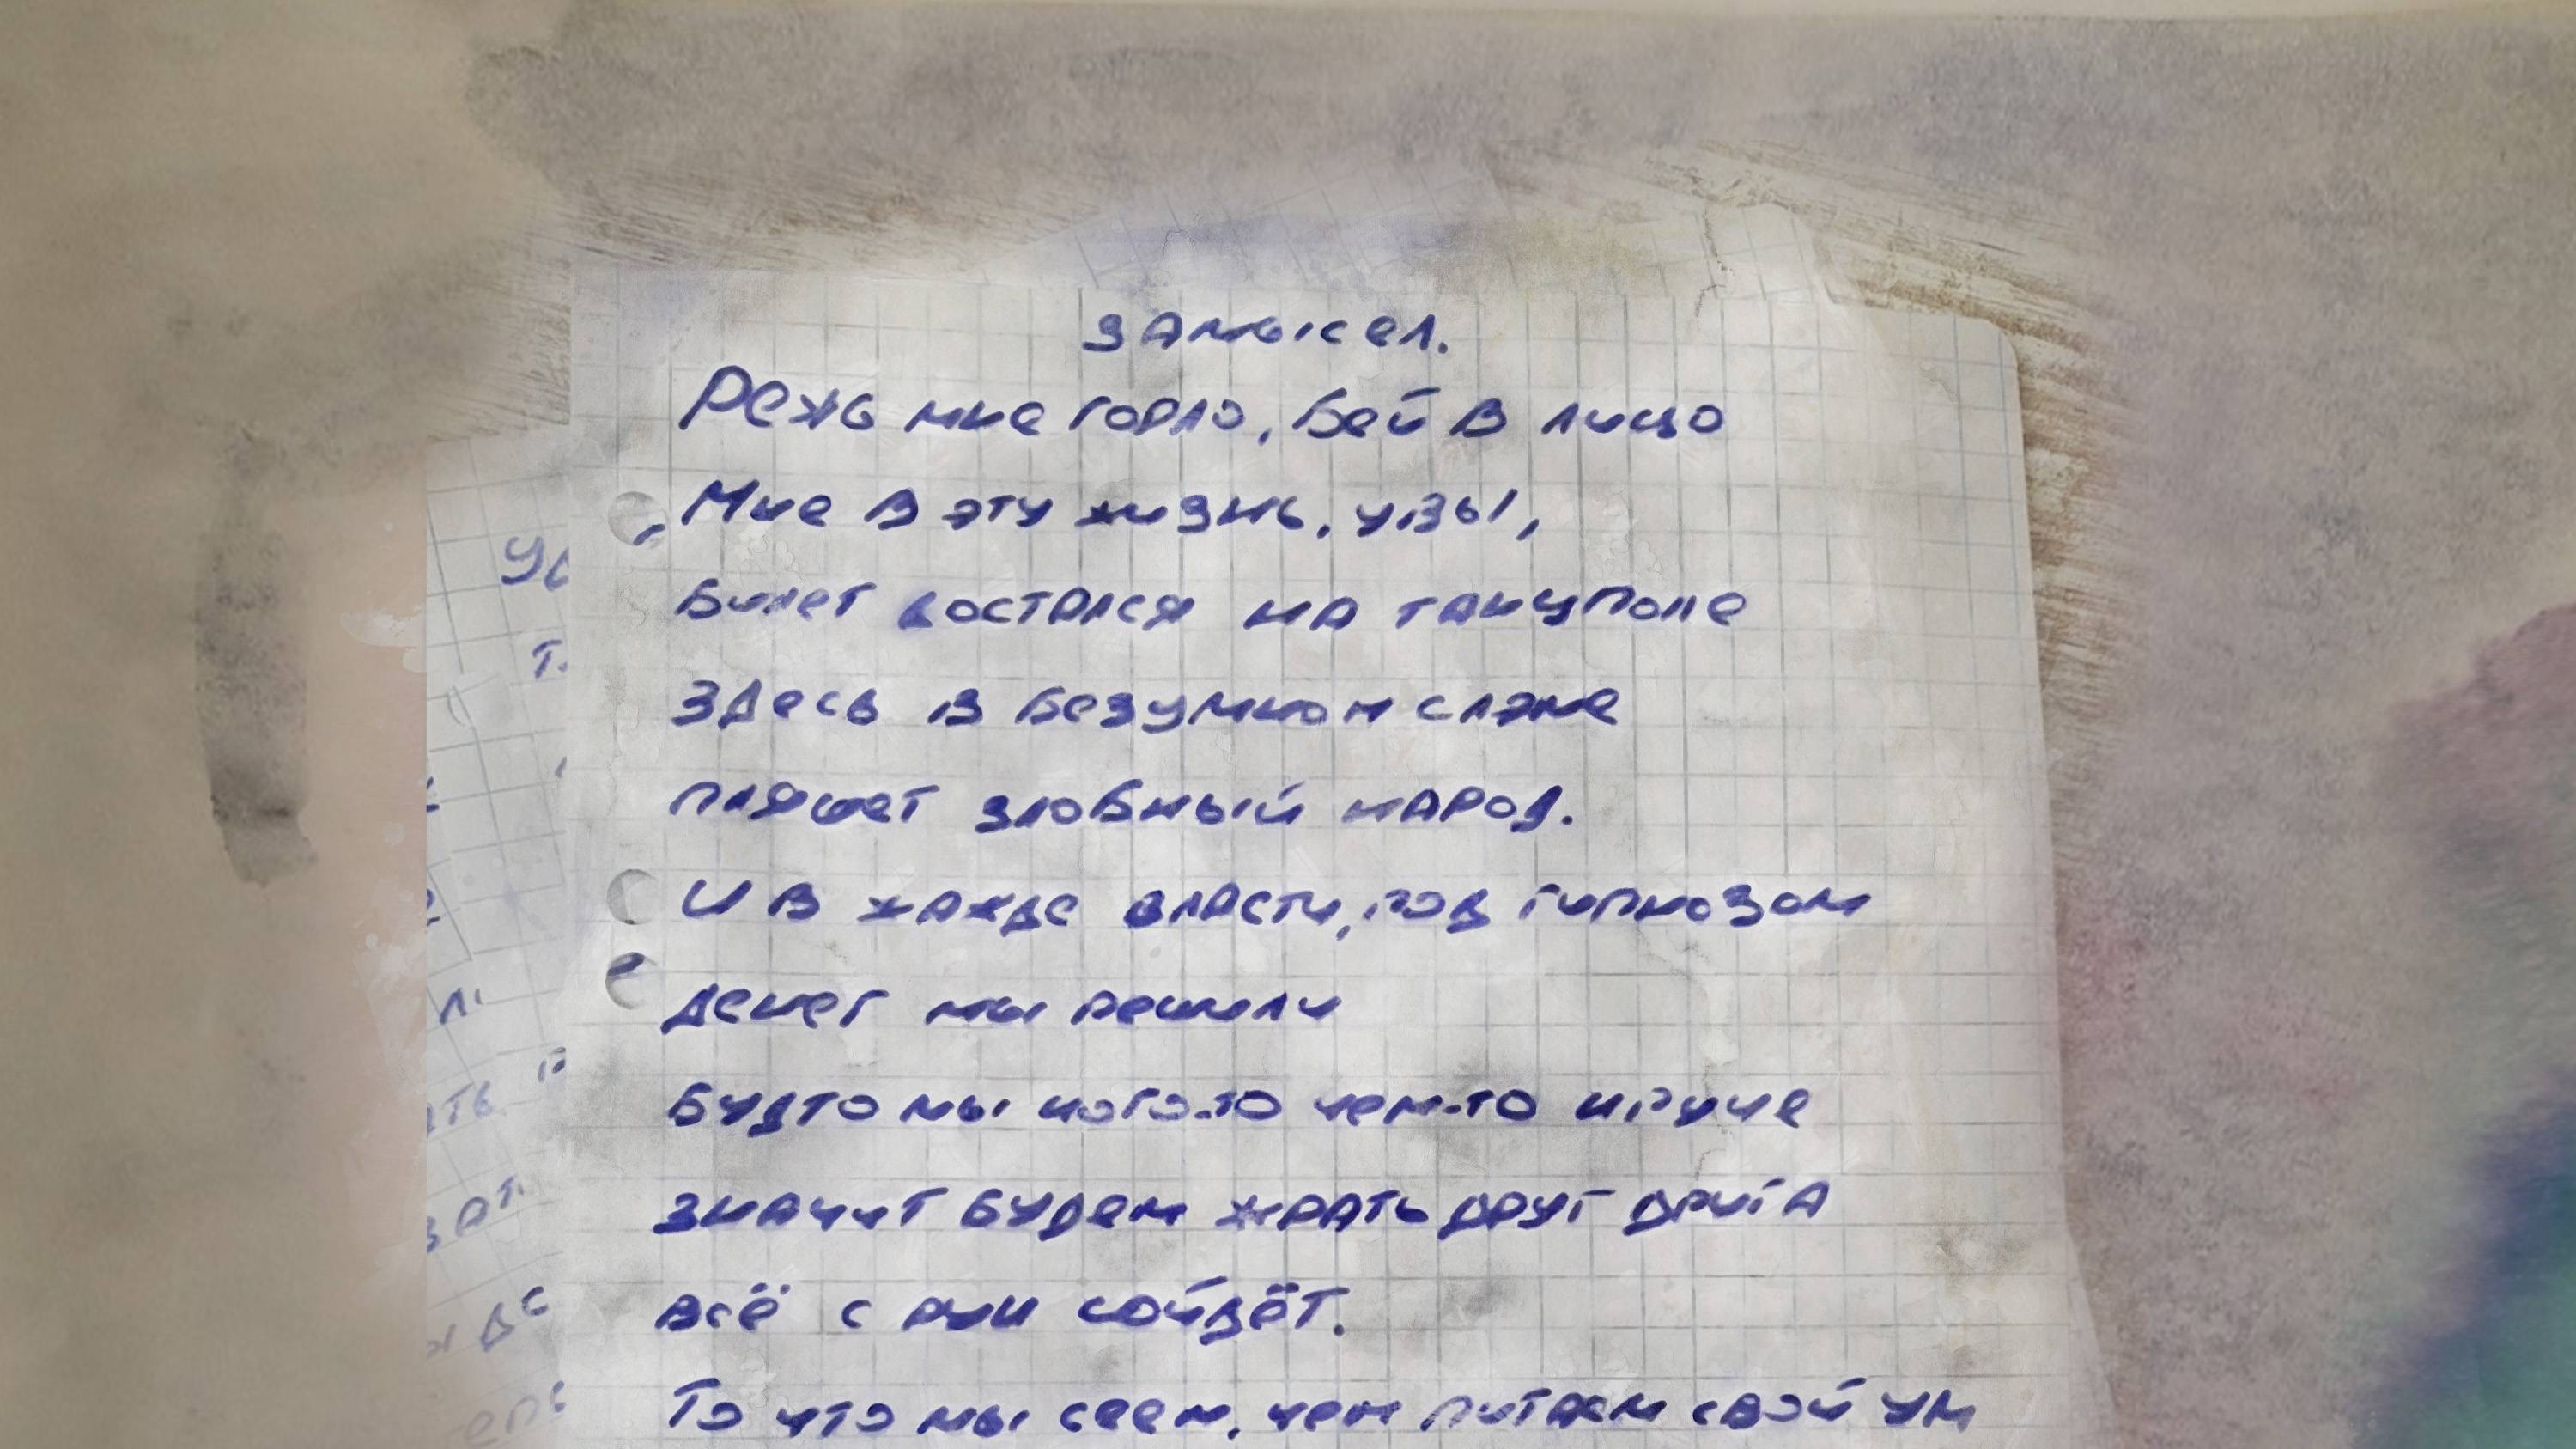 замысел.
Режь мне горло, бей в лицо
Мне в эту жизнь, увы,
Билет достался на танцполе
Здесь в безумном слэме
пляшет злобный народ.
И в жажде власти, под гипнозом
денег мы решили
Будто мы кого-то чем-то круче
значит будем жрать друг друга
всё с рук сойдёт.
То что мы сеем, чем питаем свой ум